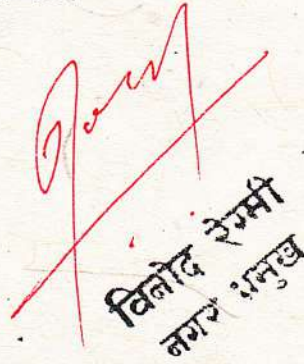 विनोद रेग्मी
नगर प्रमुख